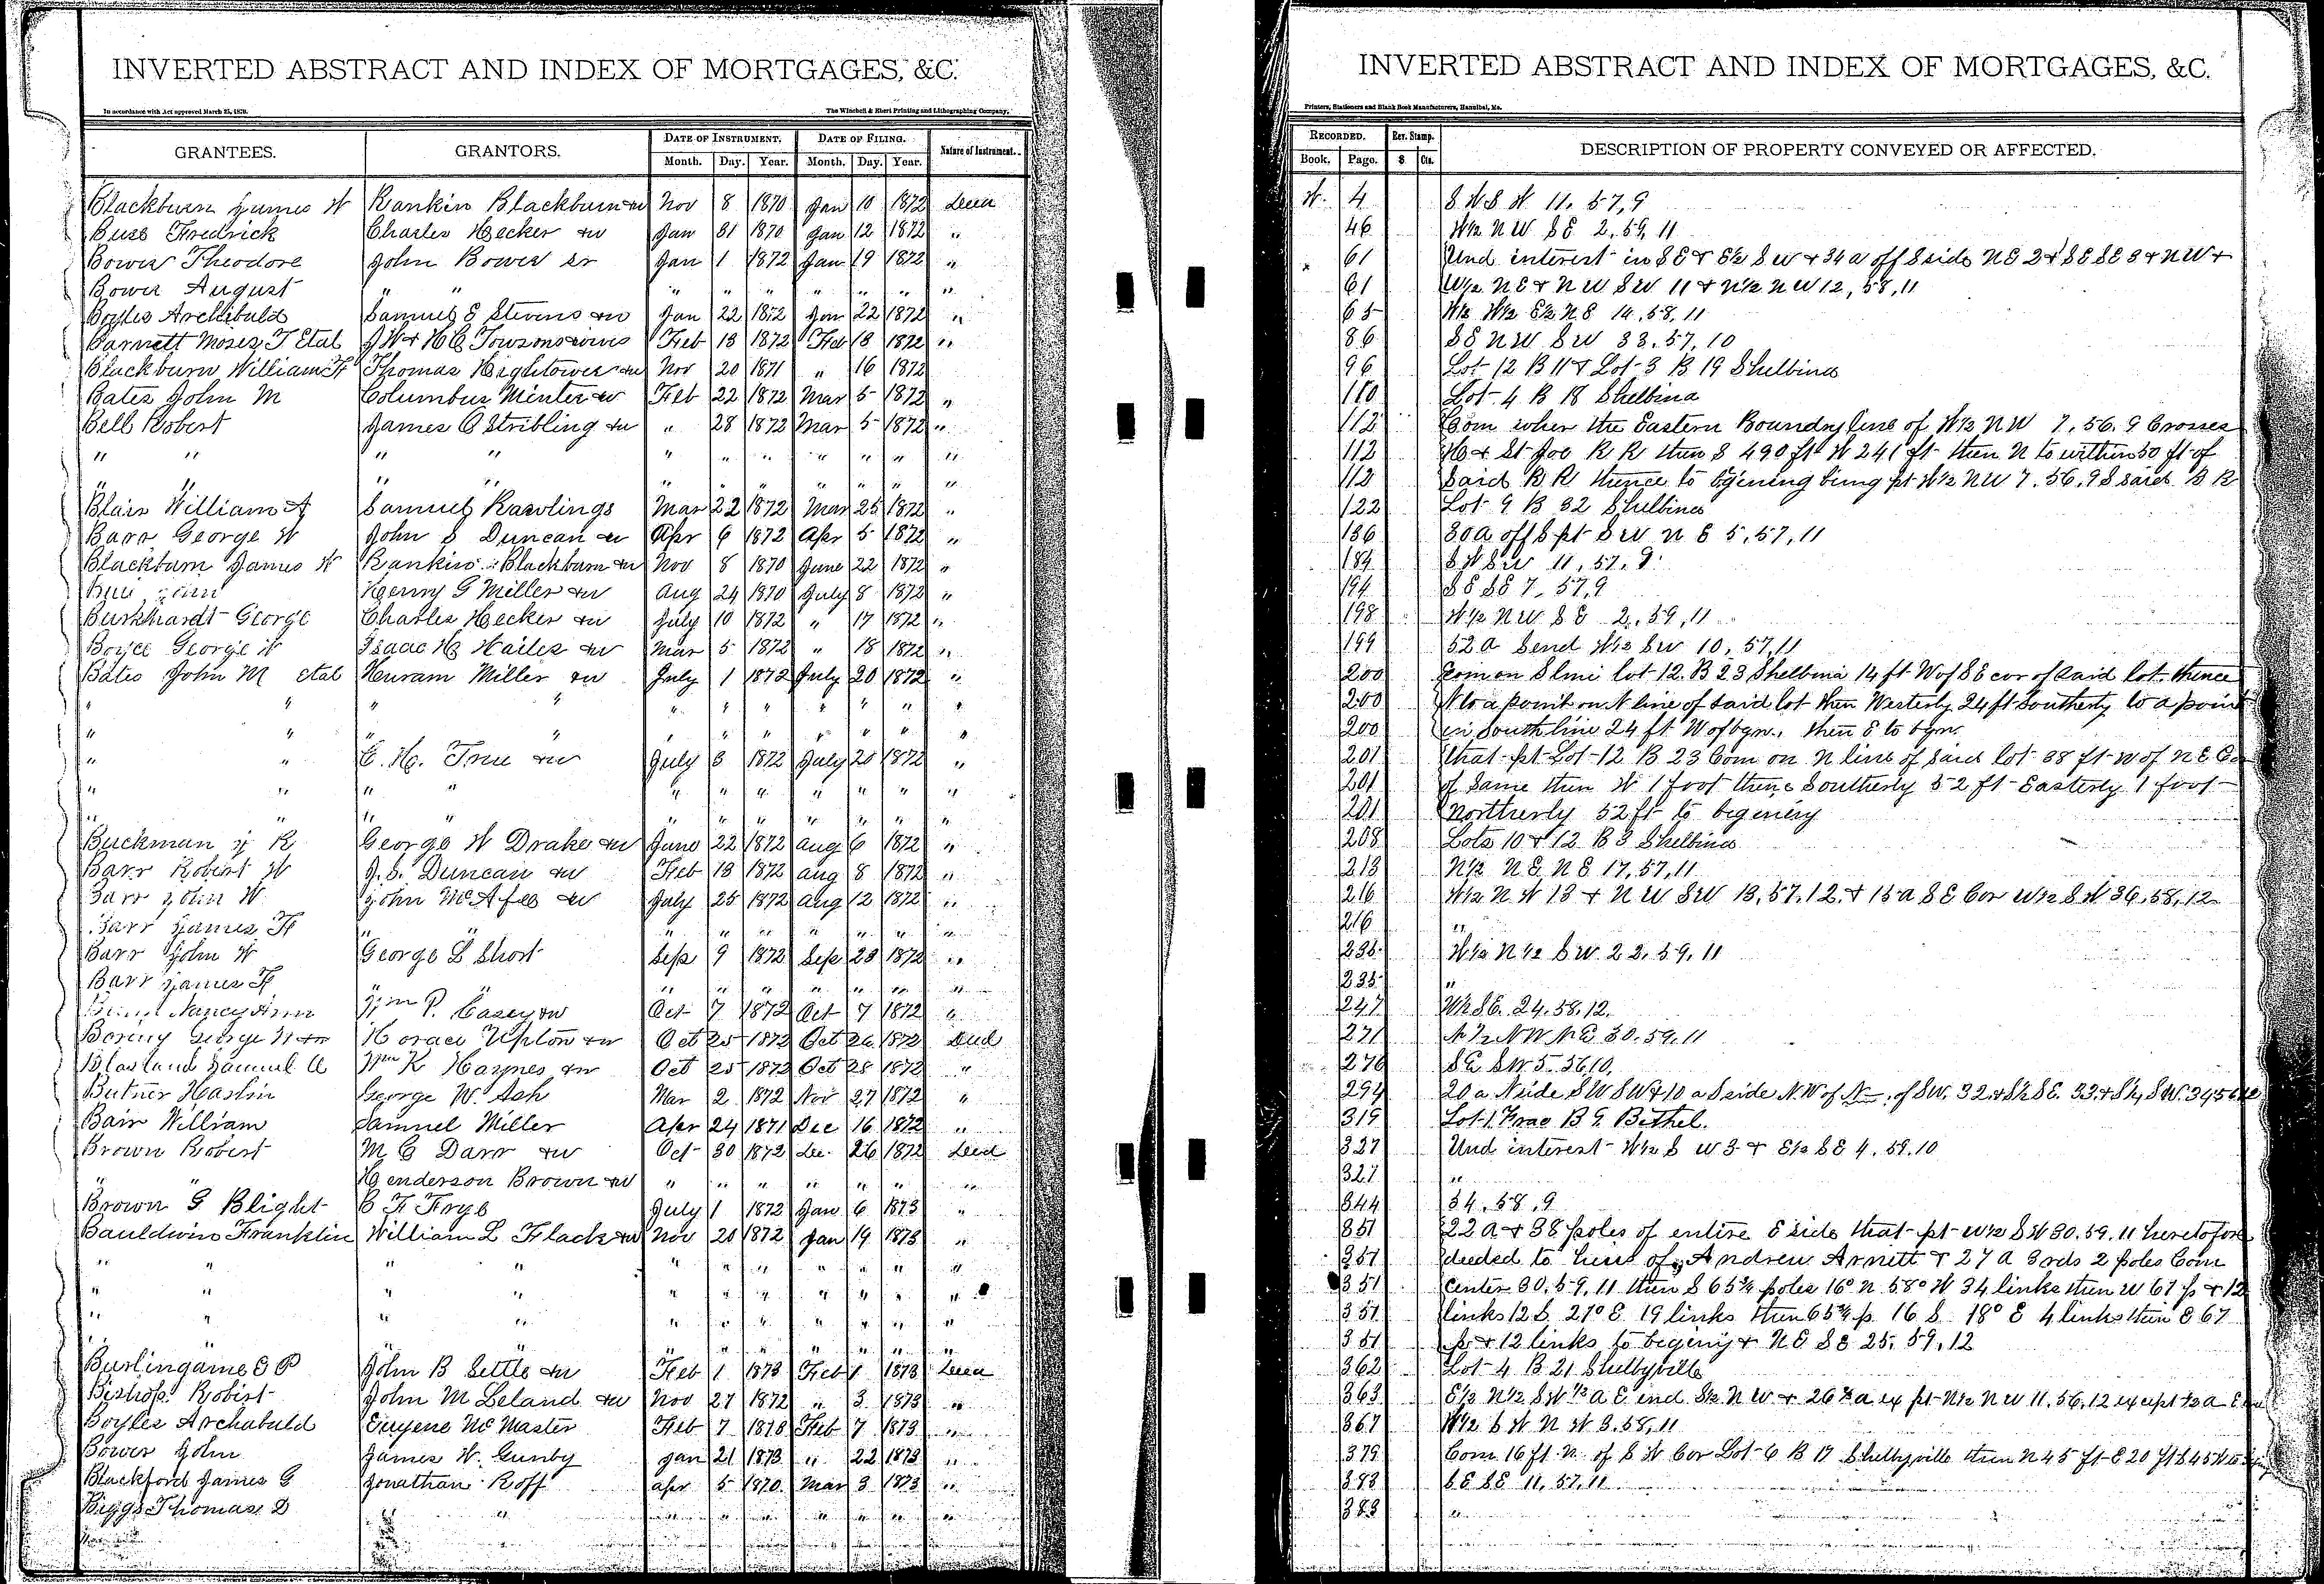 INVERTED ABSTRACT AND INDEX OF MORTGAGES, &C.
In accordance with Act approved March 25, 1879. The Winchell & Ebert Printing and Lithographing Company,
GRANTEES. GRANTORS. DATE OF INSTRUMENT. DATE OF FILING. Nature of Instrument.
Month. Day. Year. Month. Day. Year.
Blackburn James W Rankin Blackburn &w Nov 8 1870 Jan 10 1872 Deed
Buss Fredrick Charles Hecker &w Jan 31 1870 Jan 12 1872 "
Bower Theodore John Bower sr Jan 1 1872 Jan 19 1872 "
Bower August " " " " " " " " "
Boyles Archibald Samuel E Stevens &w Jan 22 1872 Jan 22 1872 "
Barnett Moses T Etal J W & H C Towson & wives Feb 13 1872 Feb 13 1872 "
Blackburn William F Thomas Hightower &w Nov 20 1871 " 16 1872
Bates John M Columbus Minter &w Feb 22 1872 Mar 5 1872 "
Bell Robert James C Stribling &w " 28 1872 Mar 5 1872 "
" " " " " " " " " " "
" " " " " " " " " " "
Blair William A Samuel Rawlings Mar 22 1872 Mar 25 1872 "
Barr George W John S Duncan &w Apr 6 1872 Apr 5 1872 "
Blackburn James W Rankin Blackburn &w Nov 8 1870 June 22 1872 "
Henry G Miller &w Aug 24 1870 July 8 1872 "
Burkhardt George Charles Hecker &w July 10 1872 " 17 1872 "
Boyce George W Isaac H Hailes &w Mar 5 1872 " 18 1872 "
Bates John M etal Huram Miller &w July 1 1872 July 20 1872 "
" " " " " " " " " " "
" " " " " " " " " " "
" " E. H. True &w July 8 1872 July 20 1872 "
" " " " " " " " " " "
" " " " " " " " " " "
Buckman J R George W Drake &w June 22 1872 Aug 6 1872 "
Barr Robert W J. S. Duncan &w Feb 13 1872 Aug 8 1872 "
Barr John W John McAfee &w July 25 1872 Aug 12 1872 "
Barr James F " " " " " " " " "
Barr John W George L Short Sep 9 1872 Sep 23 1872 "
Barr James F " " " " " " " " "
Nancy Ann Wm P. Casey &w Oct 7 1872 Oct 7 1872 "
George W Horace Upton &w Oct 25 1872 Oct 26 1872 Deed
Samuel Wm K Haynes &w Oct 25 1872 Oct 28 1872 "
Butner Haslin George W. Ash Mar 2 1872 Nov 27 1872 "
Bain William Samuel Miller Apr 24 1871 Dec 16 1872 "
Brown Robert M C Darr &w Oct 30 1872 Dec. 26 1872 Deed
" " Henderson Brown &w " " " " " " "
Brown G Blight C F Frye July 1 1872 Jan 6 1873 "
Bauldwin Franklin William L Flack &w Nov 20 1872 Jan 19 1873 "
" " " " " " " " " " "
" " " " " " " " " " "
" " " " " " " " " " "
" " " " " " " " " " "
Burlingame E P John B Settle &w Feb 1 1873 Feb 1 1873 Deed
Bishop Robert John M Leland &w Nov 27 1872 " 3 1873 "
Boyles Archabald Eugene McMaster Feb 7 1873 Feb 7 1873 "
Bower John James W. Gunby Jan 21 1873 " 22 1873 "
Blackford James G Jonathan Roff Apr 5 1870 Mar 3 1873 "
Biggs Thomas D " " " " " " " "
INVERTED ABSTRACT AND INDEX OF MORTGAGES, &C.
Printers, Stationers and Blank Book Manufacturers, Hannibal, Mo.
RECORDED. Rev. Stamp. DESCRIPTION OF PROPERTY CONVEYED OR AFFECTED.
Book. Page. $ Cts.
W. 4 S W S W 11. 57, 9
46 W½ N W S E 2, 59, 11
61 Und interest in S E & E½ S W & 34 a off S side N E 2 & S E S E 3 & N W &
61 W½ N E & N W S W 11 & N½ N W 12, 58, 11
65 W½ W½ E½ N E 14, 58, 11
86 S E N W S W 33, 57, 10
96 Lot 12 B 11 & Lot 3 B 19 Shelbina
110 Lot 4 B 18 Shelbina
112 Com wher the Eastern Boundry line of W½ N W 7. 56. 9 Crosses
112 H & St Joe R R then S 490 ft W 241 ft then N to within 50 ft of
112 Said R R thence to bgening being pt W½ N W 7. 56. 9 S said R R
122 Lot 9 B 32 Shelbina
136 30 a off S pt S W N E 5, 57, 11
184 S W S W 11, 57, 9
194 S E S E 7, 57, 9
198 W½ N W S E 2, 59, 11
199 52 a S end W½ S W 10, 57, 11
200 Com on S line lot 12. B 23 Shelbina 14 ft W of S E cor of said lot thence
200 N to a point on N line of said lot then Westerly 24 ft Southerly to a point
200 in South line 24 ft W of bgn., then E to bgn.
201 that pt Lot 12 B 23 Com on N line of said lot 38 ft W of N E Cor
201 of Same then W 1 foot thence Southerly 52 ft Easterly 1 foot
201 Northerly 52 ft to begening
208 Lots 10 & 12 B 3 Shelbina
213 N½ N E N E 17, 57, 11
216 W½ N W 13 & N W S W 13, 57, 12. & 15 a S E Cor W½ S W 36, 58, 12
216 "
235 W½ N½ S W 22, 59, 11
235 "
247 W½ S E. 24. 58. 12.
271 N½ N W N E 30. 59. 11
276 S E S W 5 56 10.
294 20 a N side S W S W & 10 a S side N.W of N of S W. 32. & S½ S E. 33. & S½ S W. 34 56 12
319 Lot 1 Frac B G Bethel.
327 Und interest W½ S W 3 & E½ S E 4, 59. 10
327 "
344 34, 58, 9
351 22 A & 38 poles of entire E side that pt W½ S W 30. 59. 11 heretofore
351 deeded to heirs of Andrew Arnett & 27 a 3 rds 2 poles Com
351 Center 30, 59, 11 then S 65¾ poles 16° N 58° W 34 links then W 67 p & 12
351 links 12 S 21° E 19 links then 65¾ p 16 S 18° E 4 links then E 67
351 p & 12 links to begening & N E S E 25, 59, 12
362 Lot 4 B 21 Shelbyville
363 E½ N½ S W ½ a E end S½ N W & 26 a ex pt N½ N W 11. 56. 12 except ½ a E
367 W½ S W N W 3. 58, 11
379 Com 16 ft N of S W Cor Lot 6 B 17 Shelbyville then N 45 ft E 20 ft S 45 W to
383 S E S E 11, 57, 11
383 "